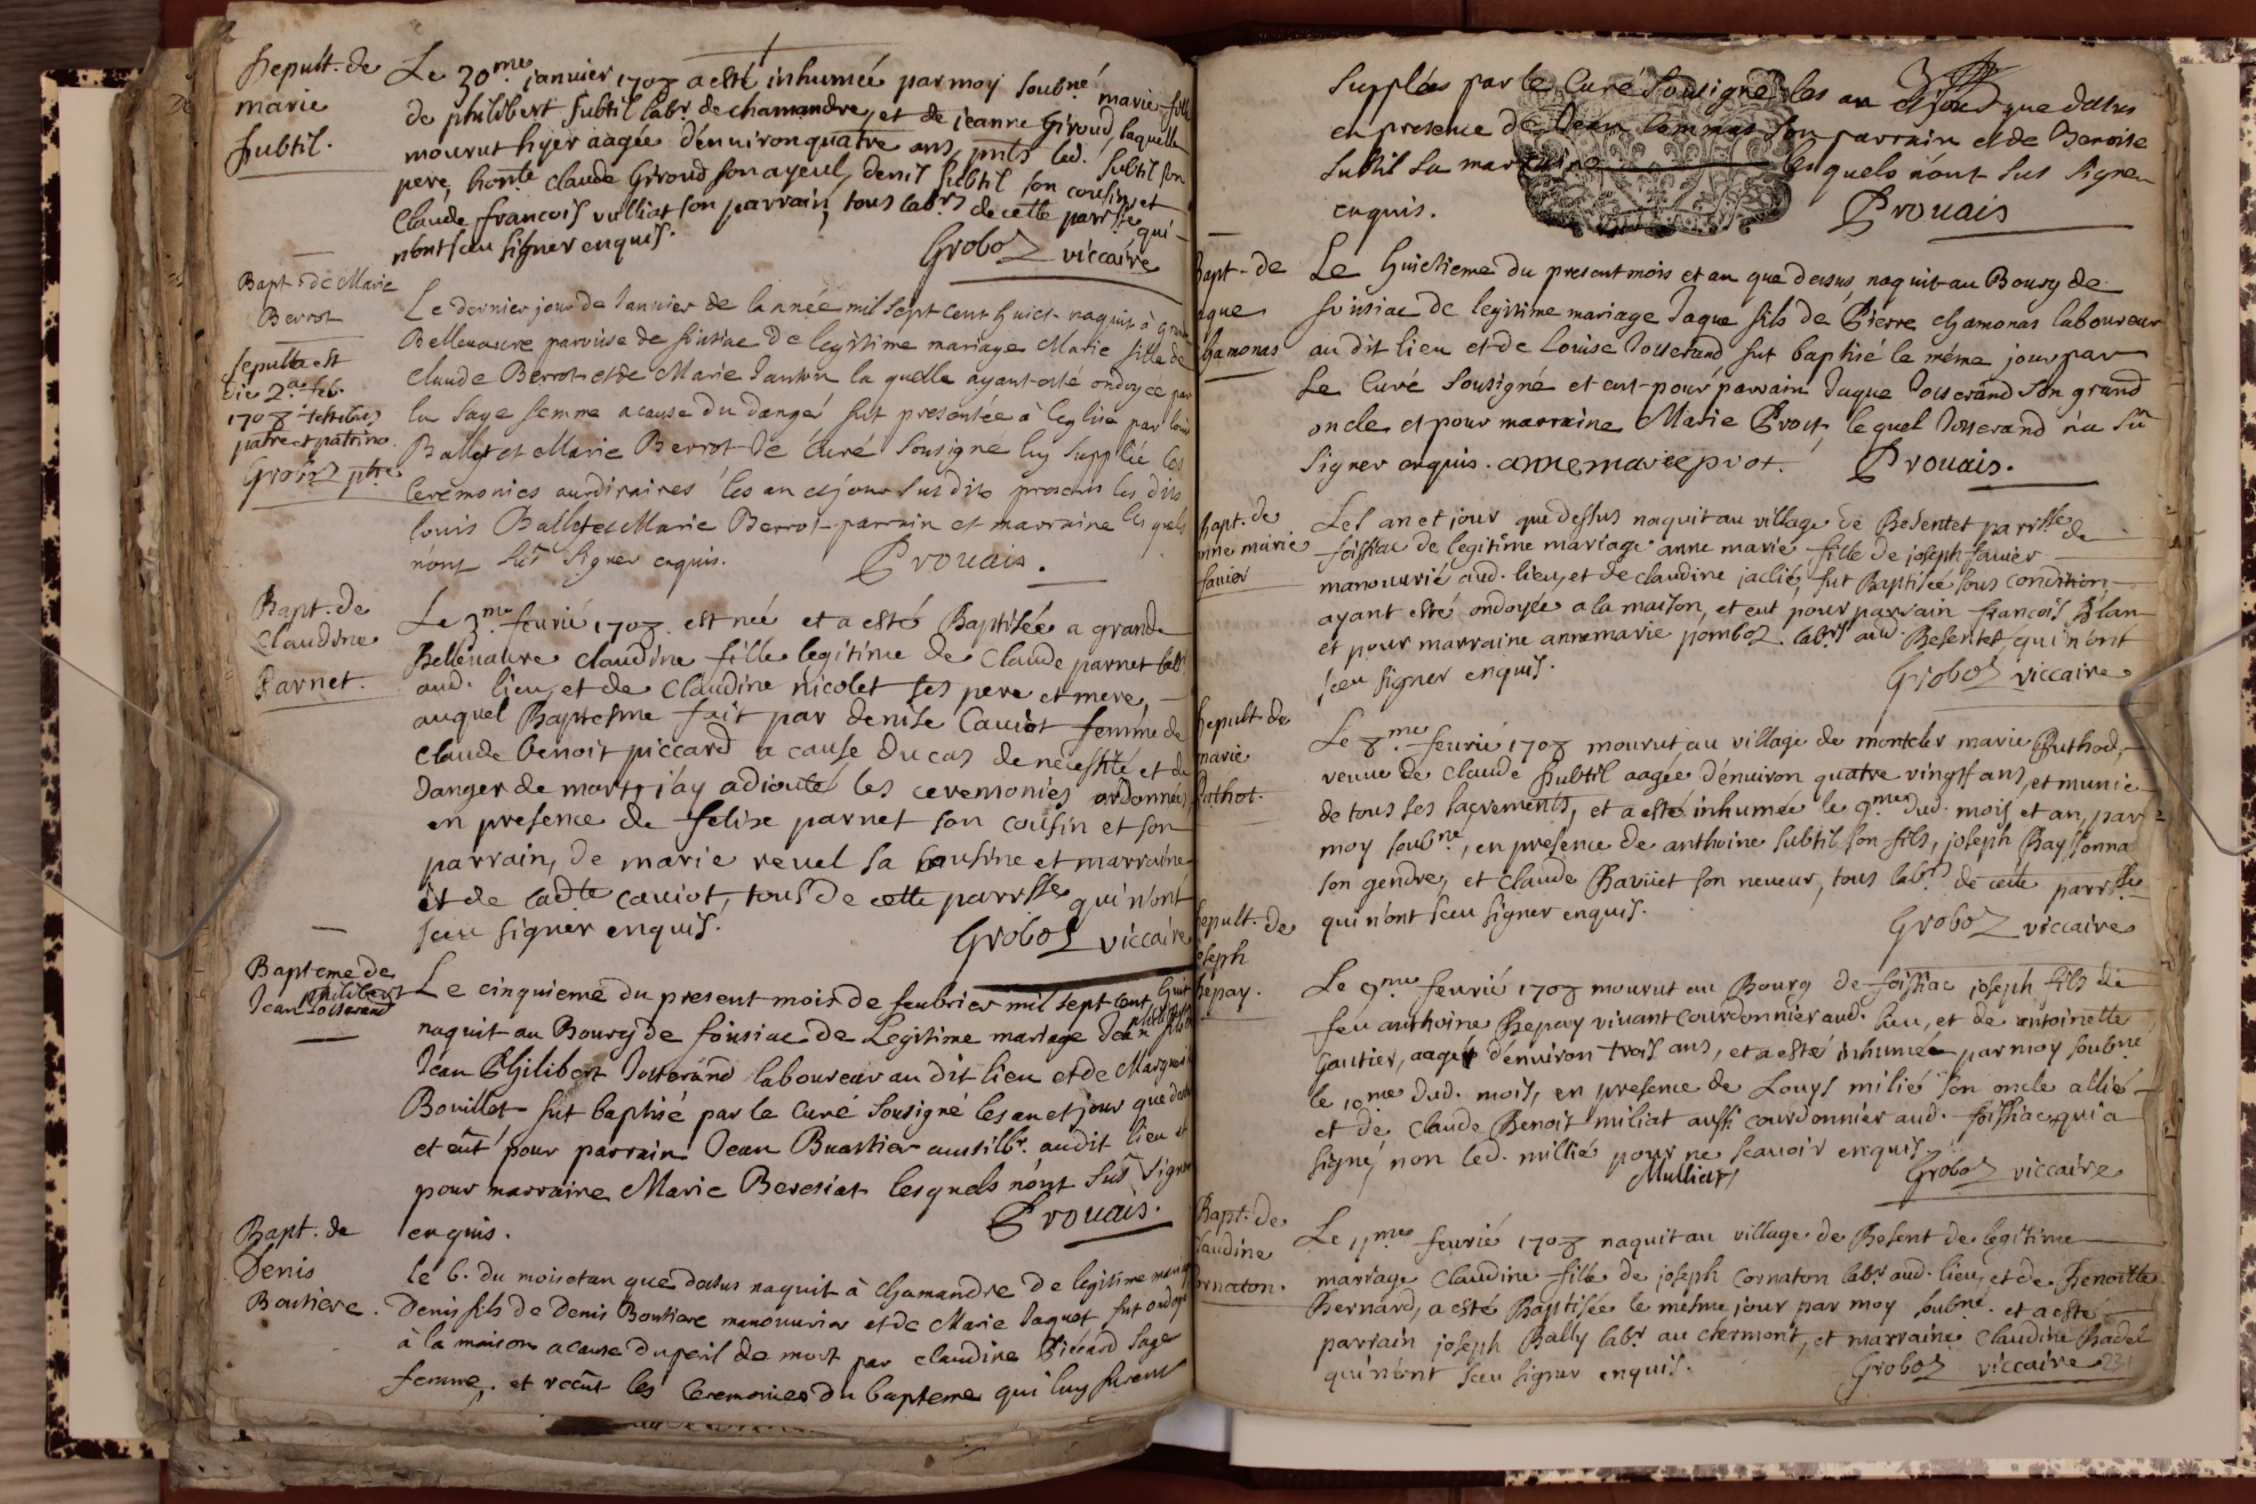 Sepult. de
marie
Subtil.
Le 30.me janvier 1708 a esté inhumée par moy soubné marie fille
de philibert Subtil labr. de chamandre, et de jeanne Giroud, laquelle
mourut hyer aagée d'environ quatre ans, pnts led. Subtil son
pere, honble claude Giroud son ayeul, denis Subtil son cousin, et
Claude francois vulliat son parrain, tous labrs de cette parrsse qui
n'ont sceu signer enquis.
Groboz viccaire
Bapt. de Marie
Berrot
Sepulta est
die 2.a feb.
1708 testibus
patre et patrino.
Groboz ptre
Le dernier jour de Janvier de la nnée mil sept cent huict naquit à grande
Bellevavre paroisse de foissiac de legitime mariage Marie fille de
Claude Berrot et de Marie Janton la quelle ayant esté ondoyee par
la sage femme a cause du dangé fut presentée à leglise par louis
Ballet et Marie Berrot le Curé sousigné luy supplié les
Ceremonies aurdinaires les an et jour sus dits presents les dits
louis Ballet et Marie Berrot parrain et marraine les quels
n'ont sut signer enquis.
Prouais.
Bapt. de
Claudine
Parnet.
Le 3.me feurié 1708. est née et a esté Baptisée a grande
Bellevavre claudine fille legitime de Claude parnet labr
aud. lieu, et de Claudine nicolet ses pere et mere,
auquel Baptesme fait par denise Caviot femme de
Claude benoit piccard a cause du cas de necessité et du
danger de mort, j'ay adiouté les ceremonies ordonnées
en presence de felix parnet son cousin et son
parrain, de marie revel sa cousine et marraine
et de ladte caviot, tous de cette parrsse qui n'ont
sceu signer enquis.
Groboz viccaire
Bapteme de
Jean philibert
Josserand
Le cinquieme du present mois de feubrier mil sept cent huit
naquit au Bourg de foissiac de Legitime mariage Jean philibert fils de
Jean Philibert Josserand laboureur au dit lieu et de Marguerite
Bouillet fut baptisé par le Curé sousigné les an et jour que dessus
et eût pour parrain Jean Buathier aud. lieu et
pour marraine Marie Beresiat lesquels n'ont sut signer
enquis.
Prouais.
Bapt. de
Denis
Boutiere.
le 6. du mois et an que dessus naquit à Chamandre de legitime mariage
Denis fils de Denis Boutiere manouvrier et de Marie Jaquet fut ondoyé
à la maison a cause du peril de mort par claudine Piccard sage
femme. et recût les Ceremonies du bapteme qui luy furent
Supplées par le Curé Sousigné les an et jour que dessus
en presence de Jean Commas son parrain et de Benoite
Subtil sa marraine lesquels n'ont sut signer
enquis.
Prouais
Bapt. de
Jaque
Chamonas
Le huictieme du present mois et an que dessus naquit au Bourg de
foissiac de legitime mariage Jaque fils de Pierre Chamonas laboureur
au dit lieu et de Louise Josserand fut baptisé le méme jour par
Le Curé Sousigné et eut pour parrain Jaque Josserand son grand
oncle et pour marraine Marie Prost, lequel Josserand n'a sû
signer enquis. anne marie prot. Prouais.
bapt. de
anne marie
favier
Les an et jour que dessus naquit au village de Besentet parrsse de
foissiac de legitime mariage anne marie fille de joseph favier
manouvrié aud. lieu, et de claudine jaclié, fut Baptisée sous condition
ayant esté ondoyée a la maison, et eut pour parrain francois Blan
et pour marraine anne marie pomboz. labrs aud. Besentet, qui n'ont
sceu signer enquis.
Groboz viccaire
Sepult. de
marie
Puthot.
Le 8.me feurié 1708 mourut au village de montcler marie Puthod,
veuve de claude Subtil aagée d'environ quatre vingts ans, et munie
de tous ses sacrements, et a esté inhumée le 9.me dud. mois et an, par
moy soubné, en presence de anthoine Subtil son fils, joseph Bayssonna
son gendre, et claude Raviiet son neveur, tous labrs de cette parrsse
qui n'ont sceu signer enquis.
Groboz viccaire
Sepult. de
joseph
hepay.
Le 9.me feurié 1708 mourut au Bourg de foissiac joseph fils de
feu anthoine hepay vivant courdonnier aud. lieu, et de antoinette
Gautier, aagé d'environ trois ans, et a esté inhumé par moy soubné
le 10.me dud. mois, en presence de Louys milié son oncle allié
et de Claude Benoit miliat aussi courdonnier aud. foissiac qui a
signé, non led. millié pour ne scavoir enquis.
Mulliat
Groboz viccaire
Bapt. de
claudine
cornaton.
Le 11.me feurié 1708 naquit au village de Besent de legitime
mariage Claudine fille de joseph cornaton labr aud. lieu, et de Benoitte
Bernard, a esté Baptisée le mésme jour par moy soubné. et a esté
parrain joseph Bally labr au clermont, et marraine Claudine Badel
qui n'ont sceu signer enquis.
Groboz viccaire
231